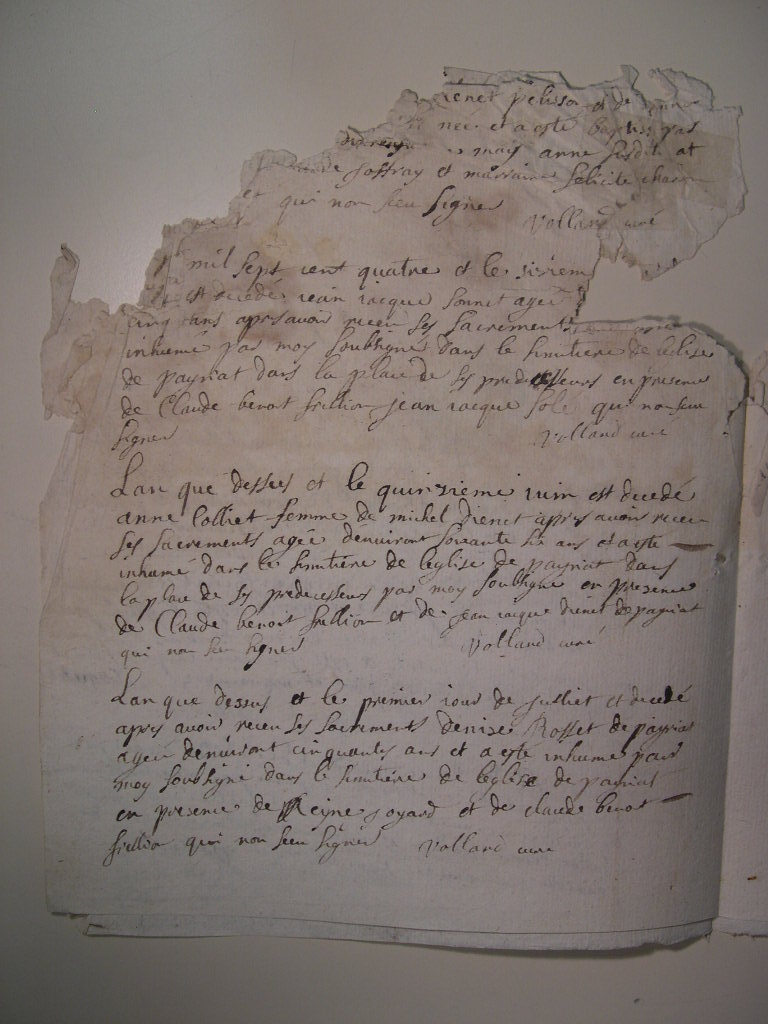 pelisson et de
née et a esté baptisé par
moy anne susdit et
Joffray et marraine felicite
et qui non sceu signer
Volland curé
mil sept cent quatre et le sixiem
est decedé iean iacque sonnet agée
cinq ans apres avoir receu ses sacrements
inhumé par moy soubsigné dans le simitiere de leglise
de payriat dans la place de ses predecesseurs en presence
de Claude benoit frillion jean iacque qui non sceu
signer Volland curé
Lan que dessus et le quinzieme iuin est decedé
anne Colliet femme de michel dienet apres avoir receu
ses sacrements agée denuiront soixante six ans et a esté
inhumé dans le simitiere de leglise de payriat dans
la place de ses predecesseurs par moy soubsigne en presence
de Claude benoit frillion et de jean iacque dienet de payriat
qui non sceu signer Volland curé
Lan que dessus et le premier iour de Julliet est decedé
apres avoir receu ses sacrements denise Rosset de payriat
agée denuiront cinquante ans et a esté inhume par
moy soubsigné dans le simitiere de leglise de payriat
en presence de Reyne joyard et de claude benoit
frillion qui non sceu signer Volland curé